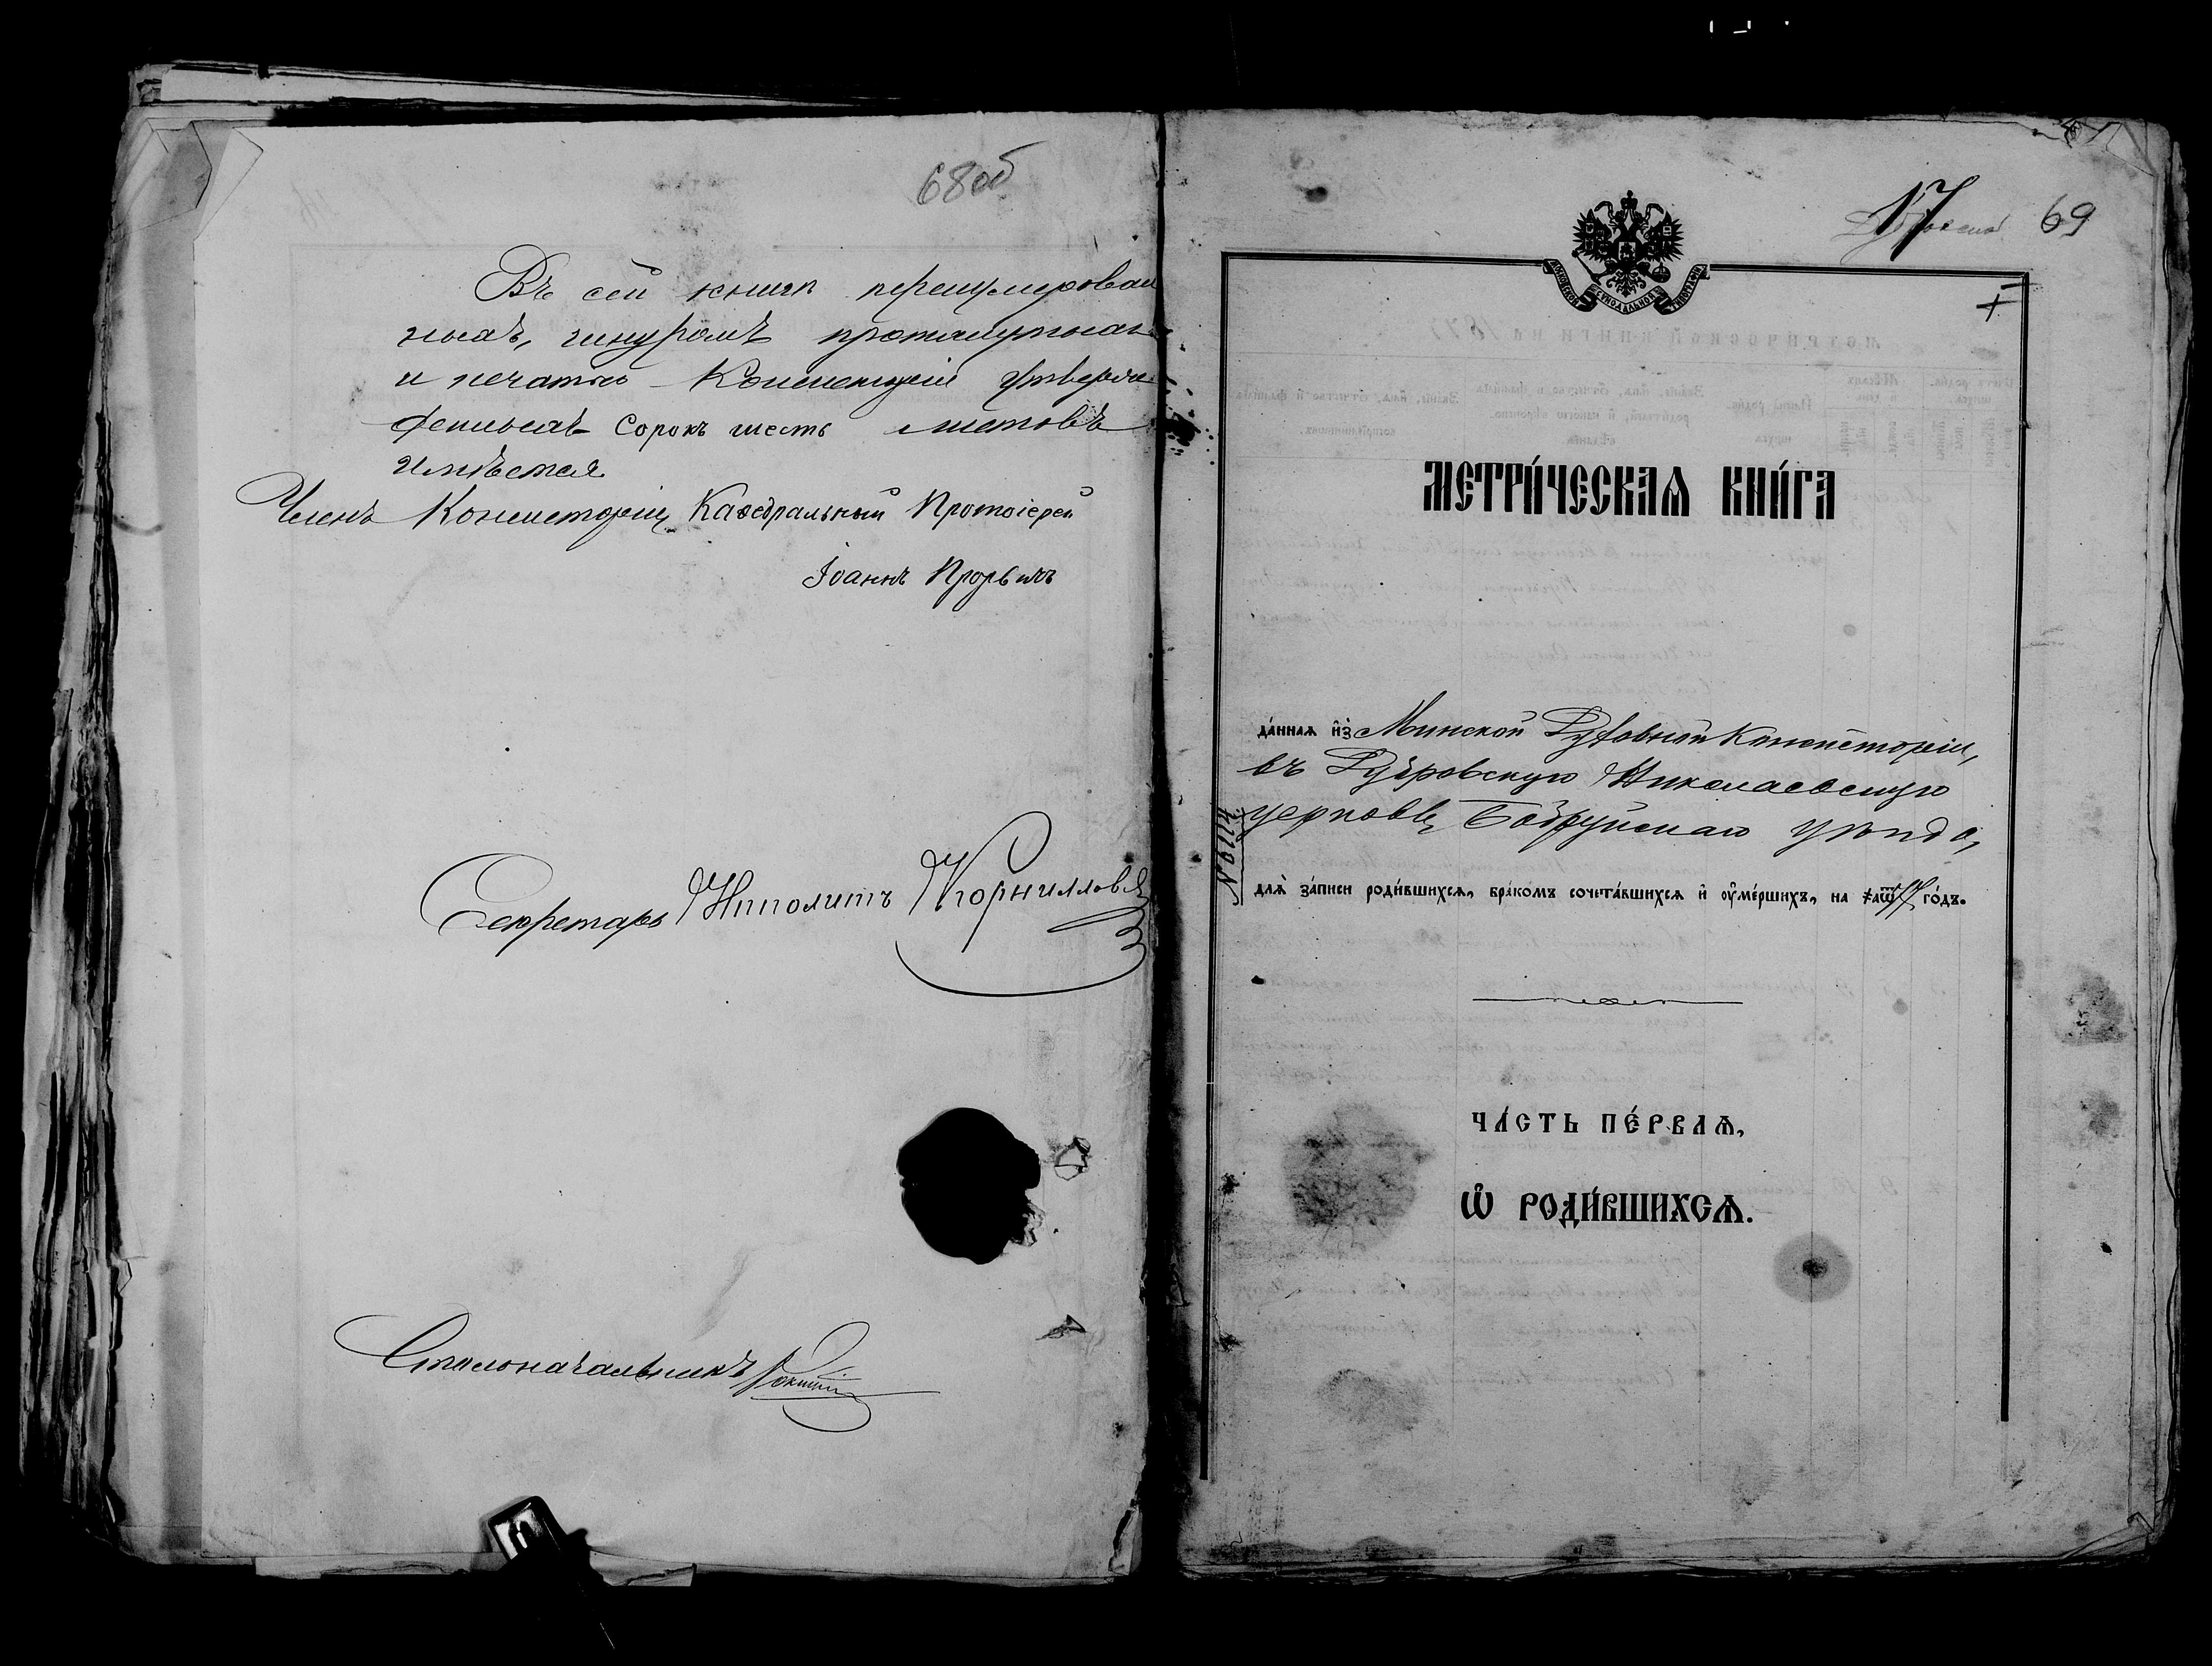 68об
Въ сей книгѣ перенумерован
ныхъ, шнуромъ прошнурованныхъ
и печатью Консисторіи утверж
денныхъ сорокъ шесть листовъ
имѣется
Членъ Консисторіи, Каѳедральный Протоіерей
Іоаннъ
Секретарь Ипполитъ Корниловъ
Столоначальникъ
17
69
МОСКОВСКОЙ СѴНОДАЛЬНОЙ ТИПОГРАФІИ
МЕТРИ́ЧЕСКАѦ КНИ́ГА
да́ннаѧ и҆з̾ Минской Духовной Консисторіи,
въ Дубровскую Николаевскую
церковь, Бобруйскаго уѣзда,
№ 9114
длѧ̀ за́писи роди́вшихсѧ, бра́комъ сочета́вшихсѧ и҆ оу҆ме́ршихъ, на ҂аѿ го́дъ.
ЧА́СТЬ ПЕ́РВАѦ,
Ѽ РОДИ́ВШИХСѦ.